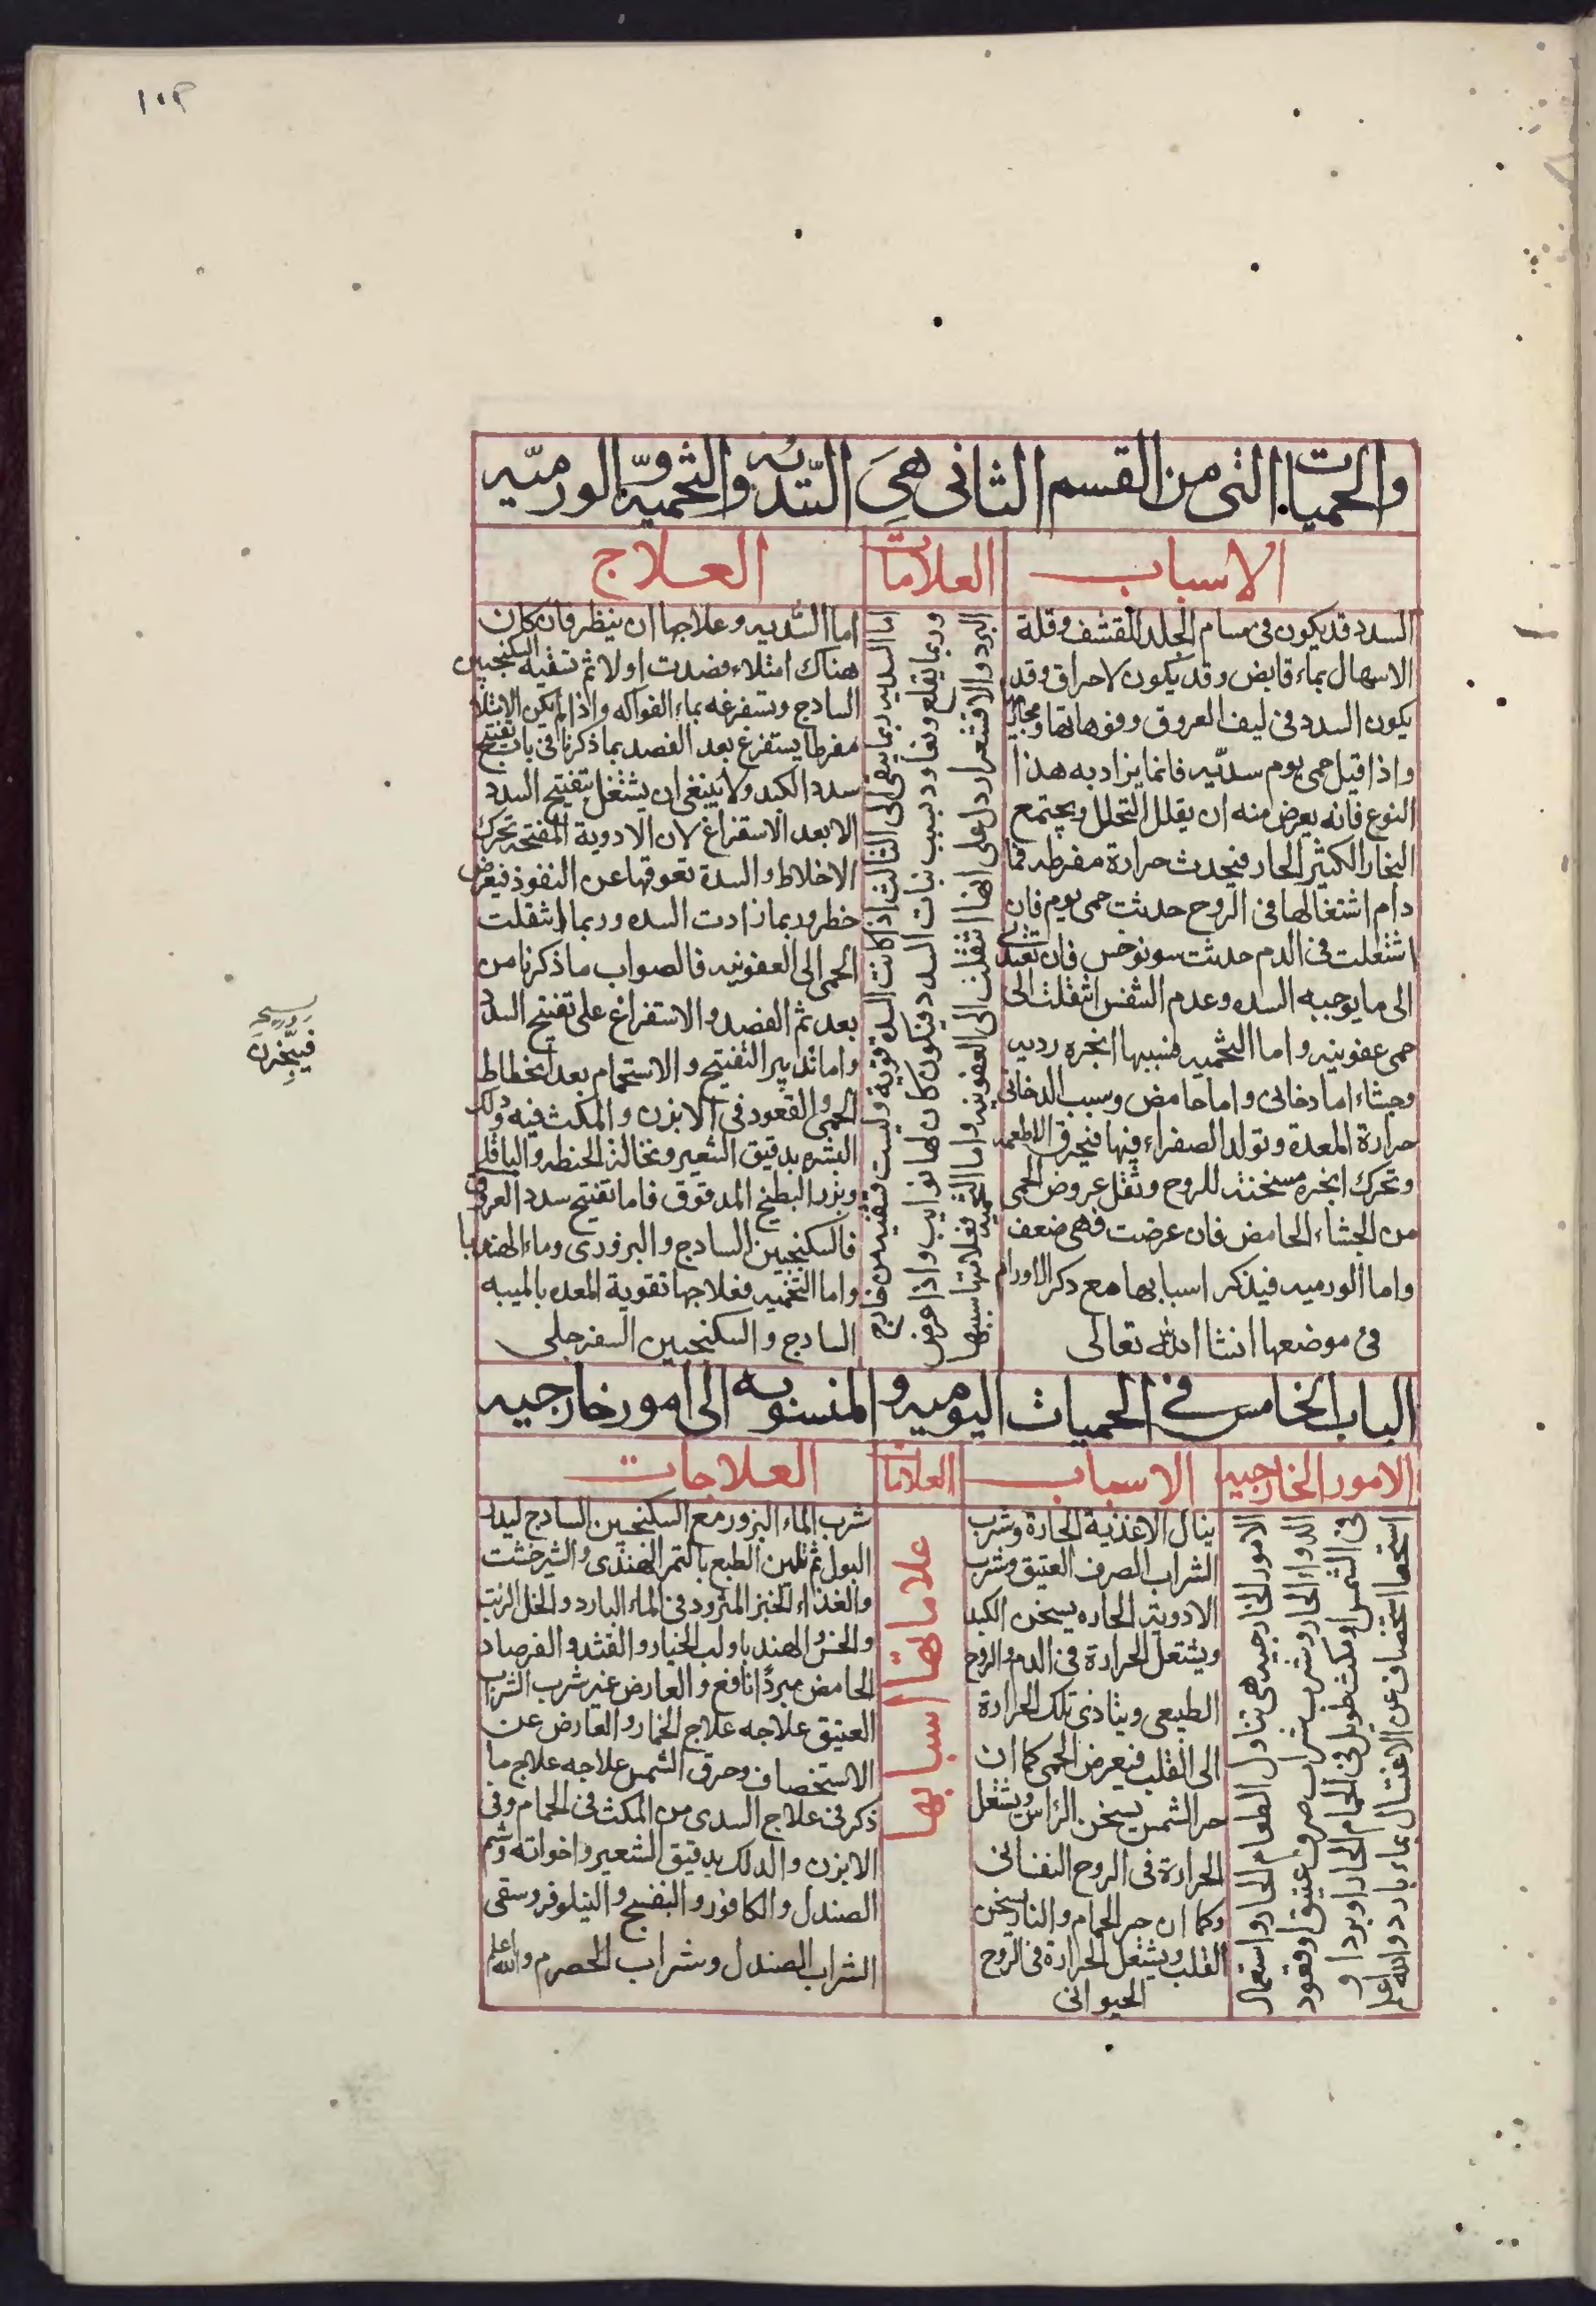 ١٠٣
والحميات التى من القسم الثانى هى السدية والتخمية والورمية
الاسباب
السدد قد يكون فى مسام الجلد للقشف وقلة
الاسهال بماء قابض وقد يكون لاحراق وقد
يكون السدد فى ليف العروق وفوهاتها ومجاريها
واذا قيل حمى يوم سدّيه فانما يراد به هذا
النوع فانه يعرض منه ان يقلل التحلل ويجتمع
البخار الكثير الحار فيحدث حرارة مفرطه فما
دام اشتغالها فى الروح حدثت حمى يوم فان
اشتعلت فى الدم حدثت سونوخس فان تعدى
الى ما يوجبه السده وعدم التنفس انتقلت الى
حمى عفونيه واما التخميه فسببها ابخره رديه
وجشاء اما دخانى واما حامض وسبب الدخانى
حرارة المعدة وتولد الصفراء فيها فيحرق الاطعمه
وتحرك ابخره مسخنه للروح وتقل عروض الحمى
من الجشاء الحامض فان عرضت فهى ضعف
واما الورميه فيذكر اسبابها مع ذكر الاورام
فى موضعها انشا الله تعالى
العلامات
اما السديه ربما يبقى الى الثالث اذا كانت السده قوية وليست تنقيه من خارج
وربما تقلع وتعاود بسبب نبات السدد فيكون كان لها نوايب واذا عرض
البرد والاقشعرار دل على انها انتقلت الى العفونيه واما التخميه فعلامتها سببها
العلاج
اما السديه وعلاجها ان ينظر فان كان
هناك امتلاء فصدت اولا ثم تسقيه السكنجبين
السادج وتستفرغه بماء الفواكه واذا لم يكن الامتلا
مفرطا يستفرغ بعد الفصد بما ذكرنا فى باب تفتيح
سدد الكبد ولا ينبغى ان يشتغل بتفتيح السدد
الا بعد الاستفراغ لان الادوية المفتحه تحرك
الاخلاط والسدة تعوقها عن النفوذ فيعرض
خطر وربما زادت السده وربما انتقلت
الحمى الى العفونيه فالصواب ما ذكرنا من
بعد ثم الفصد والاستفراغ على تفتيح السدد
واما تدابير التفتيح والاستحمام بعد انحطاط
الحمى والقعود فى الابزن والمكث فيه ودلك
البشره بدقيق الشعير ونخالة الحنطه والباقلى
وبزر البطيخ المدقوق فاما تفتيح سدد العروق
فالسكنجبين السادج والبزورى وماء الهندبا
واما التخميه فعلاجها تقوية المعده بالميبه
السادج والسكنجبين السفرجلى
فيتجّزن
الباب الخامس فى الحميات اليوميه والمنسوبه الى امور خارجيه
الامور الخارجيه
الامور الخارجيه هى تناول الطعام الحار واستعمال
الدواء الحار وشرب شراب صرف عتيق او قعود
فى الشمس او مكث طويل فى الحمام الحار او برد او
استحصاف عن الاغتسال بماء بارد والله اعلم
الاسباب
ينال الاغذية الحارة وشرب
الشراب الصرف العتيق وشرب
الادوية الحاره يسخن الكبد
ويشتعل الحرارة فى الدم والروح
الطبيعى ويتاذى تلك الحرارة
الى القلب فيعرض الحمى كما ان
حر الشمس يسخن الراس ويشتعل
الحرارة فى الروح النفسانى
وكما ان حر الحمام والنار يسخن
القلب ويشتعل الحرارة فى الروح
الحيوانى
العلامات
علاماتها اسبابها
العلاجات
شرب الماء البزور مع السكنجبين السادج ليدر
البول ثم تليين الطبع بالتمر الهندى والشيرخشت
والغذاء الخبز المثرود فى الماء البارد والخل الزيت
والخس والهندبا ولب الخيار والقثد والفرصاد
الحامض مبردًا نافع والعارض عن شرب الشراب
العتيق علاجه علاج الخمار والعارض عن
الاستحصاف وحرق الشمس علاجه علاج ما
ذكر فى علاج السدى من المكث فى الحمام وفى
الابزن والدلك بدقيق الشعير واخواته وشم
الصندل والكافور والبنفسج والنيلوفر وسقى
الشراب الصندل وشراب الحصرم والله اعلم